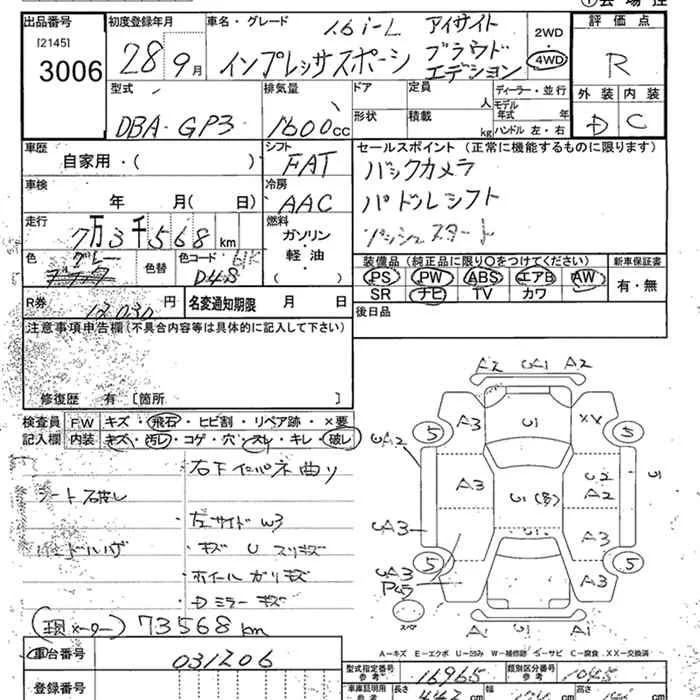 出品番号
[2145]
3006
初度登録年月
28 9月
車名・グレード
1.6i-L アイサイト
インプレッサスポーツ プラウド
エデション
2WD
・
4WD
評価点
R
外装 内装
D C
型式
DBA-GP3
排気量
1600cc
ドア
形状
定員
人
積載
kg
ディーラー・並行
モデル
年式 年
ハンドル 左・右
車歴
自家用・( )
シフト
FAT
セールスポイント (正常に機能するものに限ります)
バックカメラ
パドルシフト
プッシュスタート
車検
年 月( 日)
冷房
AAC
走行
7万3千568km
燃料
ガソリン
・
軽油
( )
色
グレー
色替
色コード
61K
D4S
装備品 (純正品に限り○をつけてください)
PS PW ABS エアB AW
SR ナビ TV カワ
新車保証書
有・無
R券
12030円
名変通知期限 月 日
後日品
注意事項申告欄(不具合内容等は具体的に記入して下さい)
修復歴 有 [箇所 ]
検査員
記入欄
FW キズ・飛石・ヒビ割・リペア跡・×要
内装 キズ・汚レ・コゲ・穴・スレ・キレ・破レ
右下インパネ曲り
シート破レ
・左サイドW3
・キズ U スリキズ
・ホイールガリキズ
・Dミラーキズ
(現メーター) 73568km
A2 U1 A2
A3 U1 XX
5 5
UA2
A3 U1(多) U2
A2
5
UA3
A3
U1
5 5
UA3
P45
A3
スペア
A1 U1 A1
A−キズ E−エクボ U−凹み W−補修跡 S−サビ C−腐食 XX−交換済
車台番号
031206
登録番号
型式指定番号
参考
16965
類別区分番号
参考
1045
車庫証明用
参考
長さ
442cm
幅
cm
高さ
cm